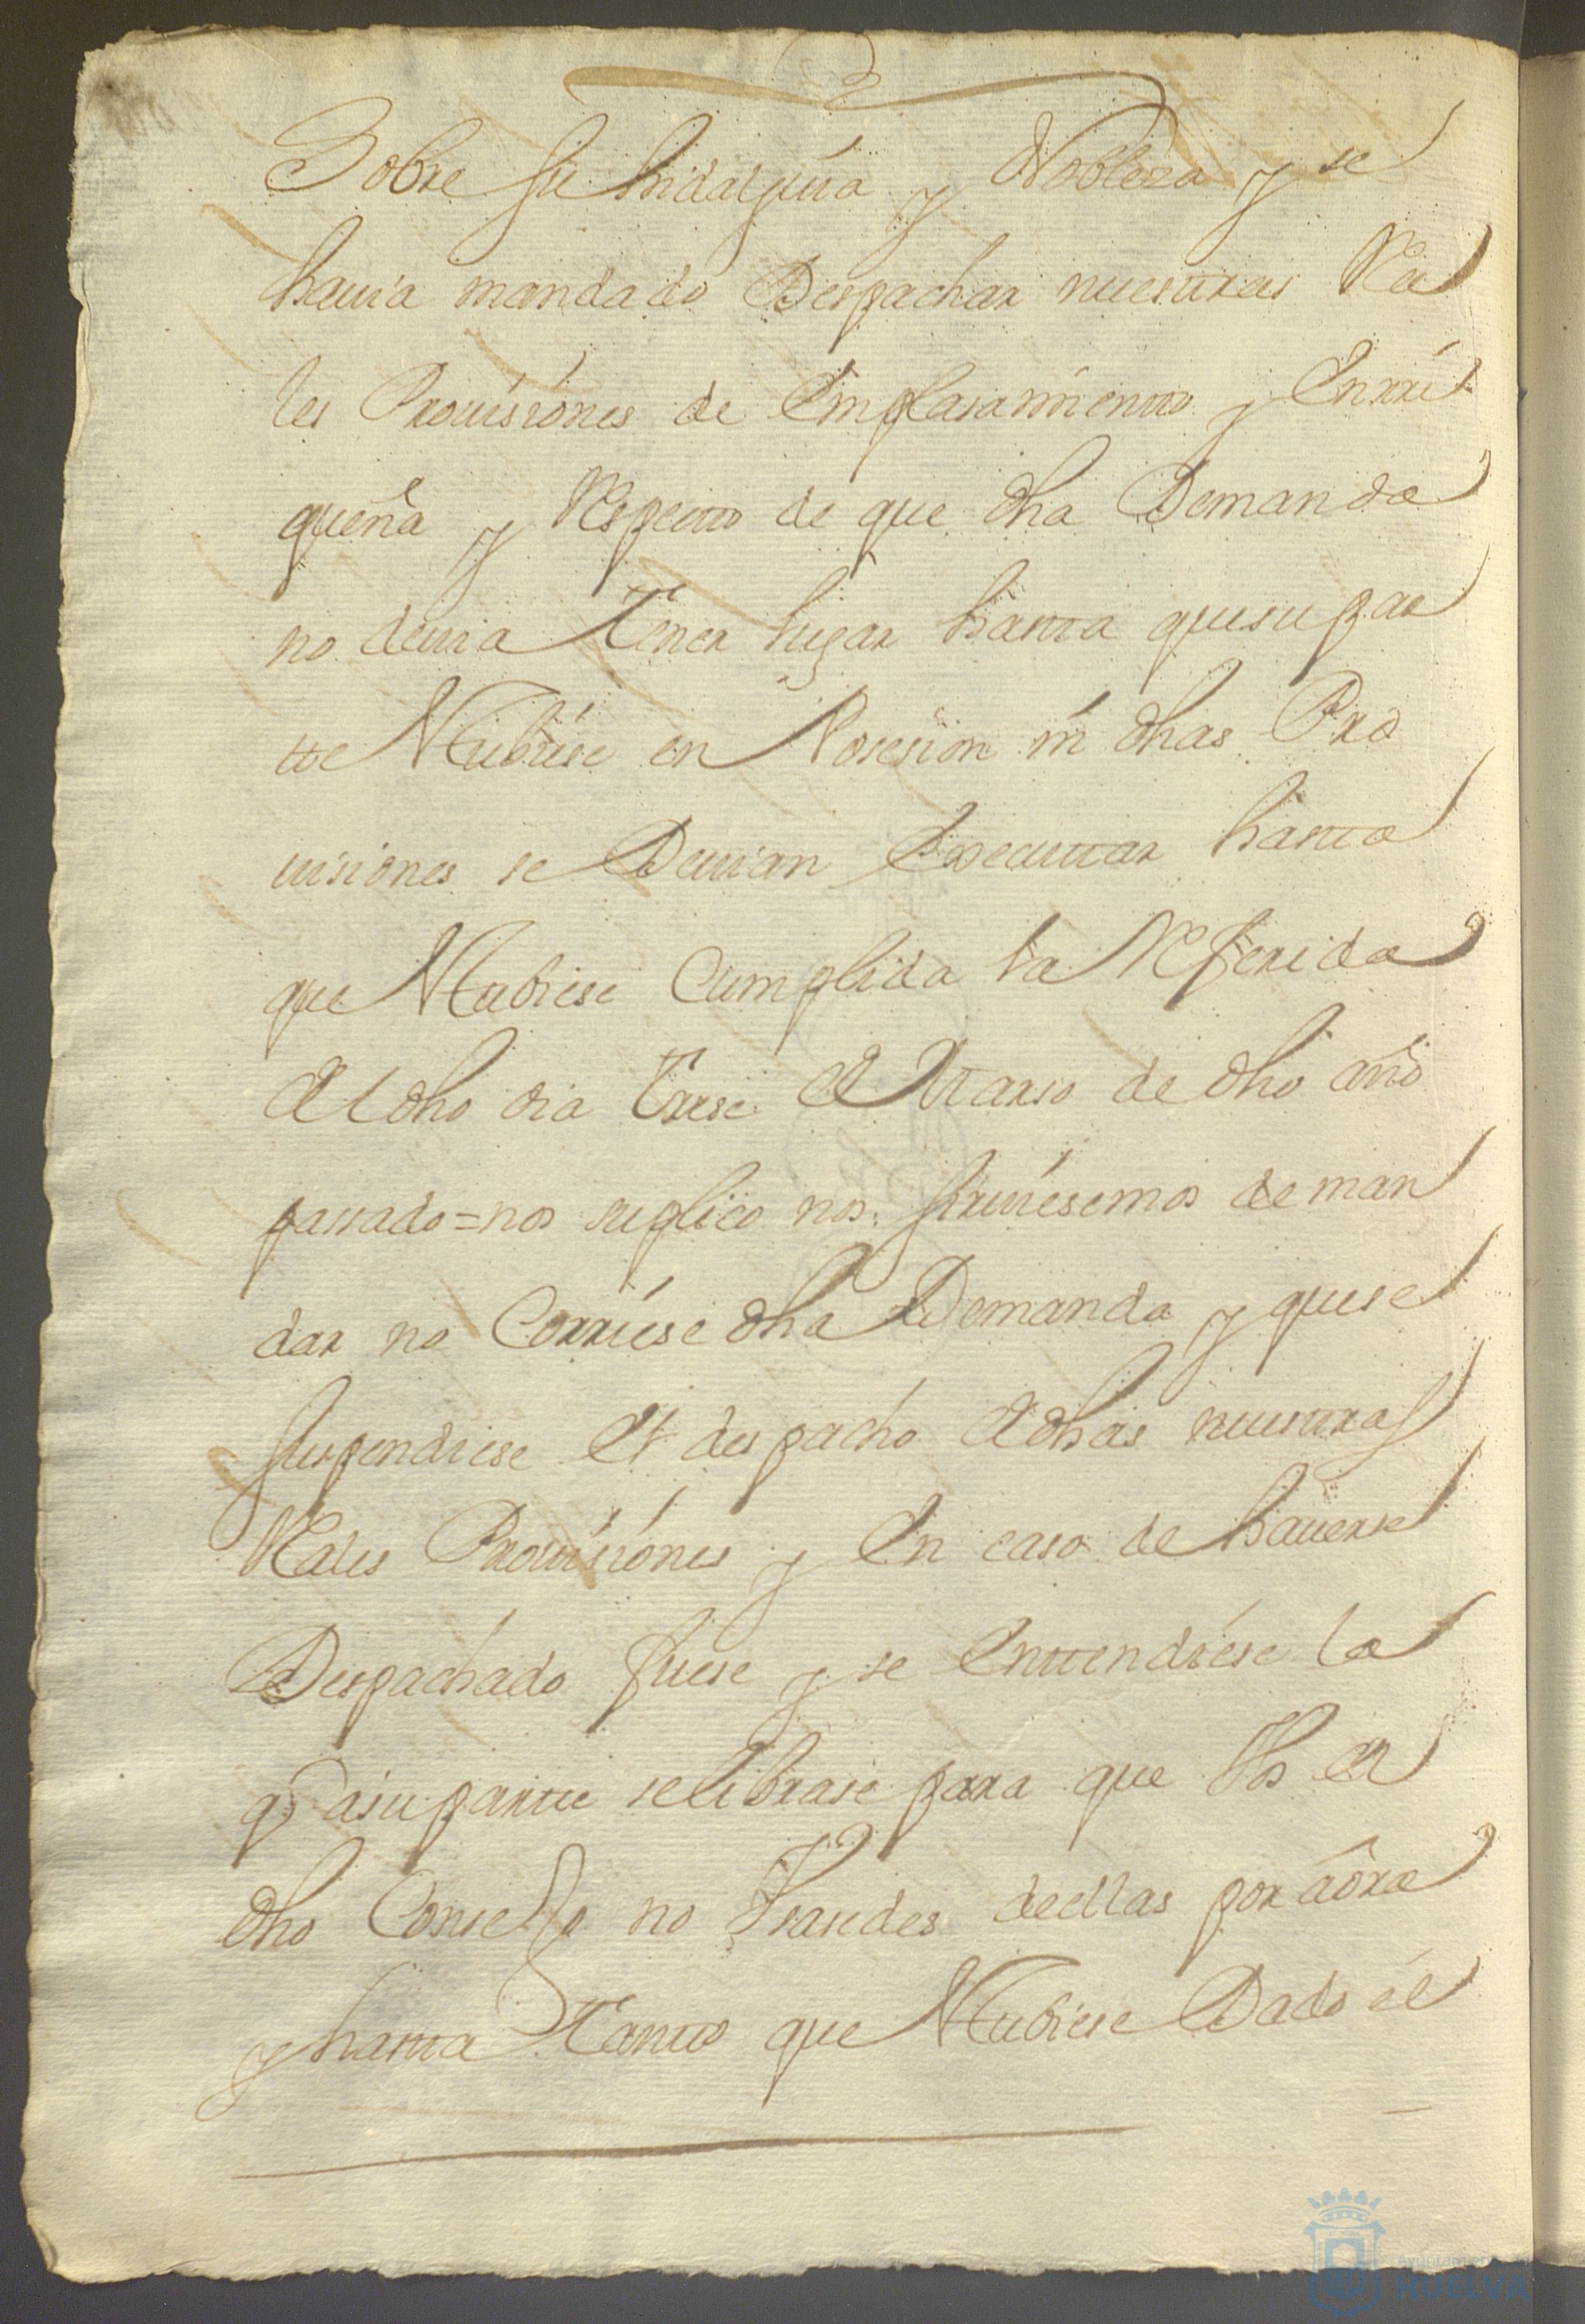 Sobre su hidalguia y Nobleza y se
havia mandado Despachar nuestras Rea
les Provisiones de Emplasamiento y Enrri
queña y Respecto de que dha Demanda
no devia tener lugar hasta que su par
te Hubiese en Posesion ni dhas Pro
visiones se Devian Executar hasta
que Hubiese Cumplida la Referida
Al dho dia trese de Marso de dho año
passado = nos suplico nos sirviesemos de man
dar no Corriese dha Demanda y que se
suspendiese El despacho de dhas nuestras
Reales Provisiones y En caso de haverse
Despachado fuese y se Entendiese la
q̃ a su parte se librase para que Vos el
dho Consejo no Usasedes de ellas por aora
y hasta tanto que Hubiese Dado el
Ayuntamiento de
HUELVA